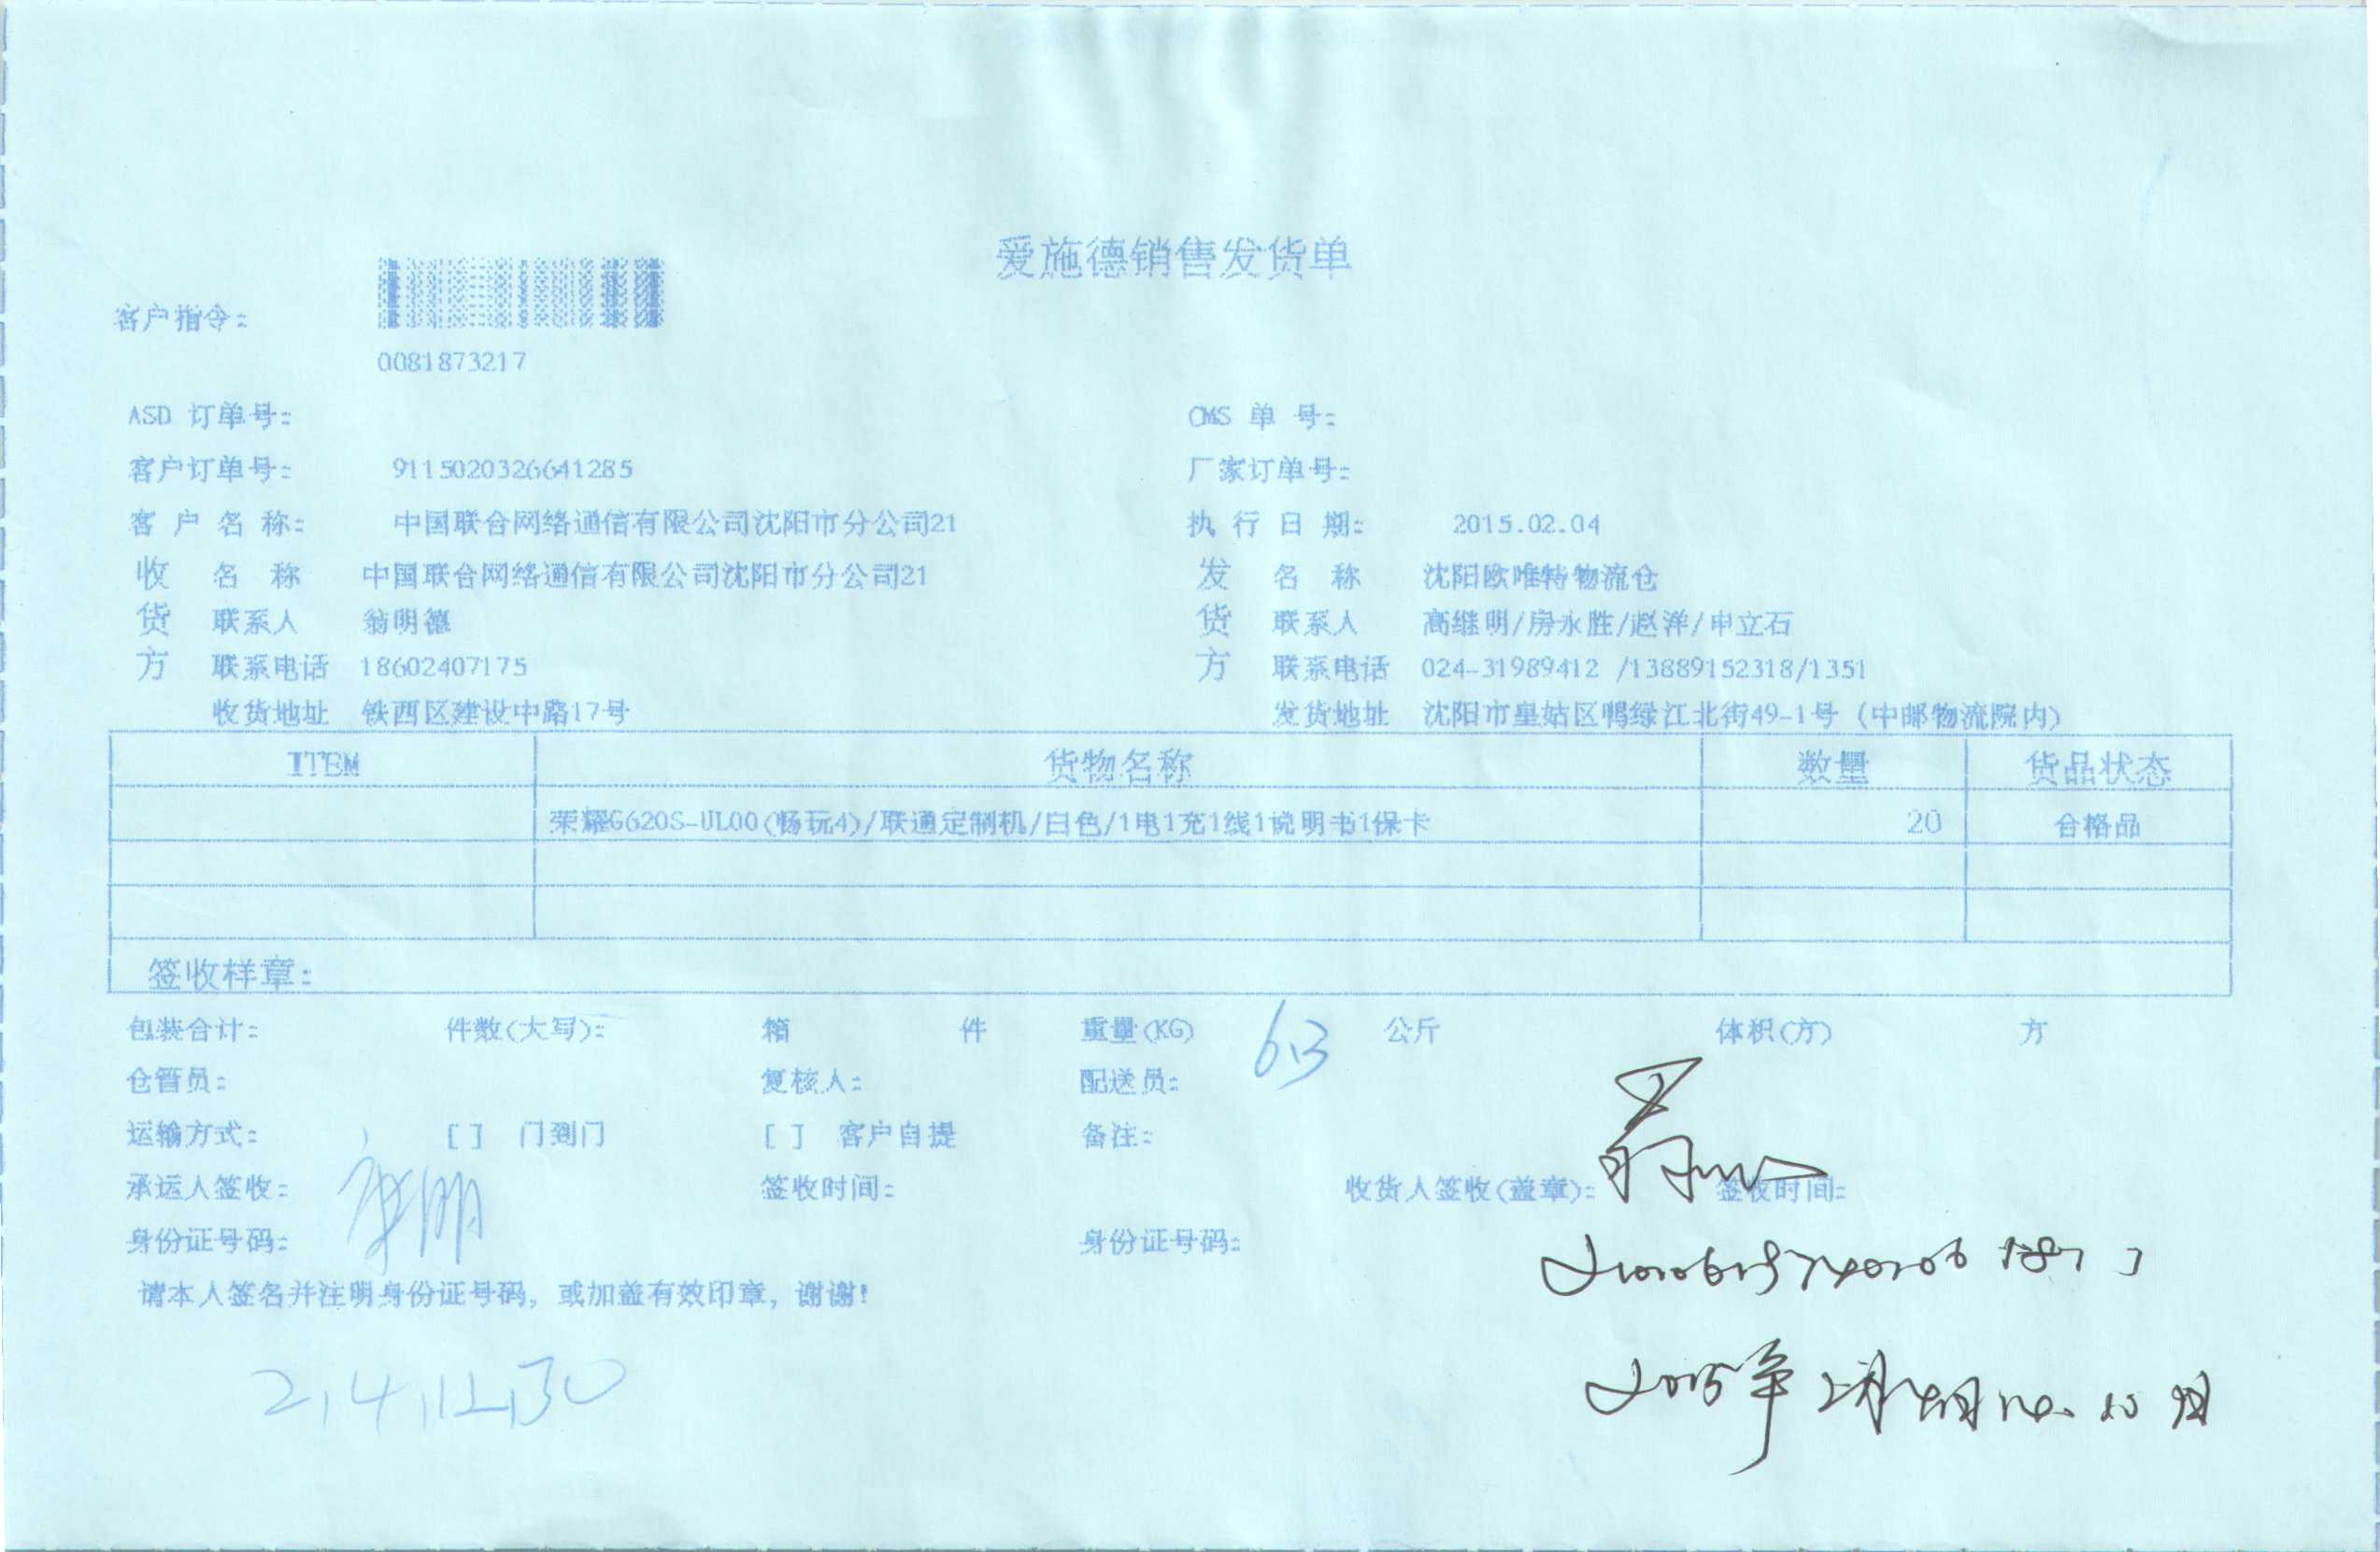 爱施德销售发货单
客户指令:
0081873217
ASD 订单号: CMS 单 号:
客户订单号: 9115020326641285 厂家订单号:
客 户 名 称: 中国联合网络通信有限公司沈阳市分公司21 执 行 日 期: 2015.02.04
收 名 称 中国联合网络通信有限公司沈阳市分公司21 发 名 称 沈阳欧唯特物流仓
货 联系人 翁明德 货 联系人 高继明/房永胜/赵洋/申立石
方 联系电话 18602407175 方 联系电话 024-31989412 /13889152318/1351
收货地址 铁西区建设中路17号 发货地址 沈阳市皇姑区鸭绿江北街49-1号 (中邮物流院内)
ITEM 货物名称 数量 货品状态
荣耀G620S-UL00(畅玩4)/联通定制机/白色/1电1充1线1说明书1保卡 20 合格品
签收样章:
包装合计: 件数(大写): 箱 件 重量(KG) 6.3 公斤 体积(方) 方
仓管员: 复核人: 配送员:
运输方式: ) [ ] 门到门 [ ] 客户自提 备注:
承运人签收: 签收时间: 收货人签收(盖章): 签收时间:
身份证号码: 身份证号码:
请本人签名并注明身份证号码, 或加盖有效印章, 谢谢!